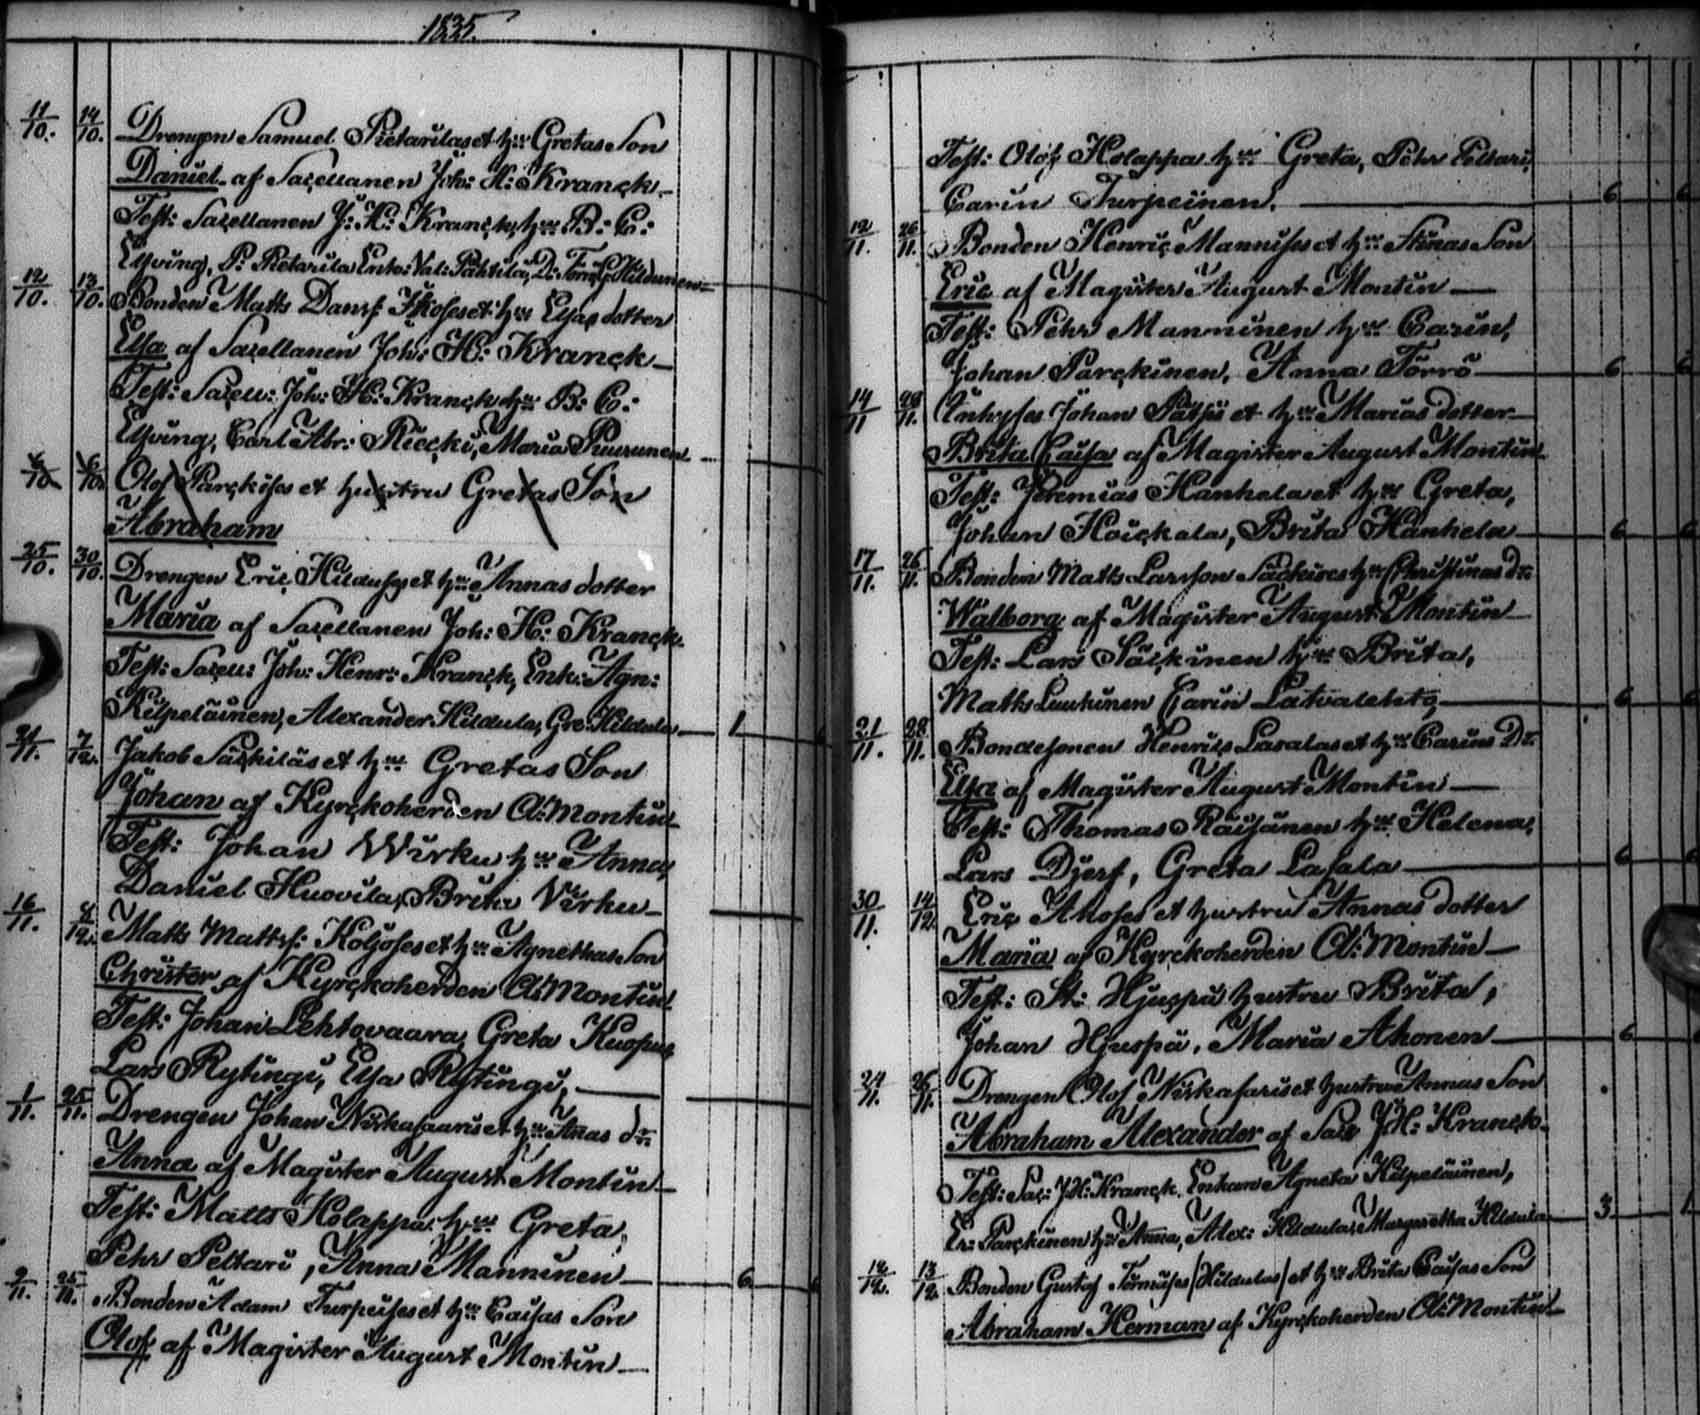 1835.
11/10. 14/10. Drengen Samuel Pietarilas et h:us Gretas Son
Daniel af Sacellanen Joh: H: Kranck
Test: Sacellanen J: H: Kranck, h:us B: C:
Elfving, P: Pietarila Enka: Val: Pahtila, D: Hildunen
12/10. 13/10. Bonden Matts Danss: et h:us Elsas dotter
Elsa af Sacellanen Joh: H: Kranck
Test: Sacell: Joh: H: Kranck h:us B: C:
Elfving, Carl Abr: Riecki, Maria Puurunen
6/10 6/10. Olof Parckises et hustru Gretas Son
Abraham
25/10. 30/10. Drengen Eric Hilduses et h:us Annas dotter
Maria af Sacellanen Joh: H: Kranck
Test: Sacell: Joh: Henr: Kranck, Enk: Agn:
Kilpeläinen, Alexander Hildula, Gre: Hildula 1
21/11. 7/12. Jakob Säckiläs et h:us Gretas Son
Johan af Kyrckoherden A: Montin
Test: Johan Wirku h:us Anna,
Daniel Huovila, Brita Virku
16/11. 4/12. Matts Mattss: Koljoses et h:us Agnethas Son
Christer af Kyrckoherden A: Montin
Test: Johan Lehtovaara, Greta
Lars Rytingi, Elsa Rytingi,
1/11. 25/11. Drengen Johan Nirkasaaris et h:us Añas d:r
Anna af Magister August Montin
Test: Matts Holappa h:us Greta,
Pehr Peltari, Anna Manninen 6
9/11. 25/11. Bonden Adam Turpeises et h:us Caisas Son
Olof af Magister August Montin
Test: Olof Holappa h:us Greta, Pehr Peltari,
Carin Turpeinen. 6 6
12/11. 26/11. Bonden Henric Mannises et h:us Stinas Son
Eric af Magister August Montin
Test: Pehr Manninen h:us Carin,
Johan Parckinen, Anna Törrö 6 6
14/11 28/11. Inhyses Johan et h:us Marias dotter
Brita Caisa af Magister August Montin
Test: Jeremias Hanhela et h:us Greta,
Johan Hoickala, Brita Hanhela 6 6
17/11. 26/11. Bonden Matts Larsson Säckises h:us Christinas D:r
Walborg af Magister August Montin
Test: Lars Säckinen h:us Brita,
Matts Luukinen Carin Latvalehto 6 6
21/11. 28/11. Bondesonen Henrics Lasalas et h:us Carins D:r
Elsa af Magister August Montin
Test: Thomas Räisänen h:us Helena,
Lars Djerf, Greta Lasala 6 6
30/11. 14/12. Eric Ahoses et hustru Annas dotter
Maria af Kyrckoherden A: Montin
Test: St: Hjuspä hustru Brita,
Johan Hjuspä, Maria Ahonen 6
24/11. 26/11. Drengen Olof Nirkasaris et hustru Annas Son
Abraham Alexander af Sac: J H: Kranck
Test: Sac: J H: Kranck, Enkan Agneta Kilpeläinen,
Er: Parckinen h:us Anna, Alex: Hildula, Margaretha Hildula 3 1
12/12. 13/12. Bonden Gustaf /Hildulas/ et h:us Brita Caisas Son
Abraham Herman af Kyrckoherden A: Montin